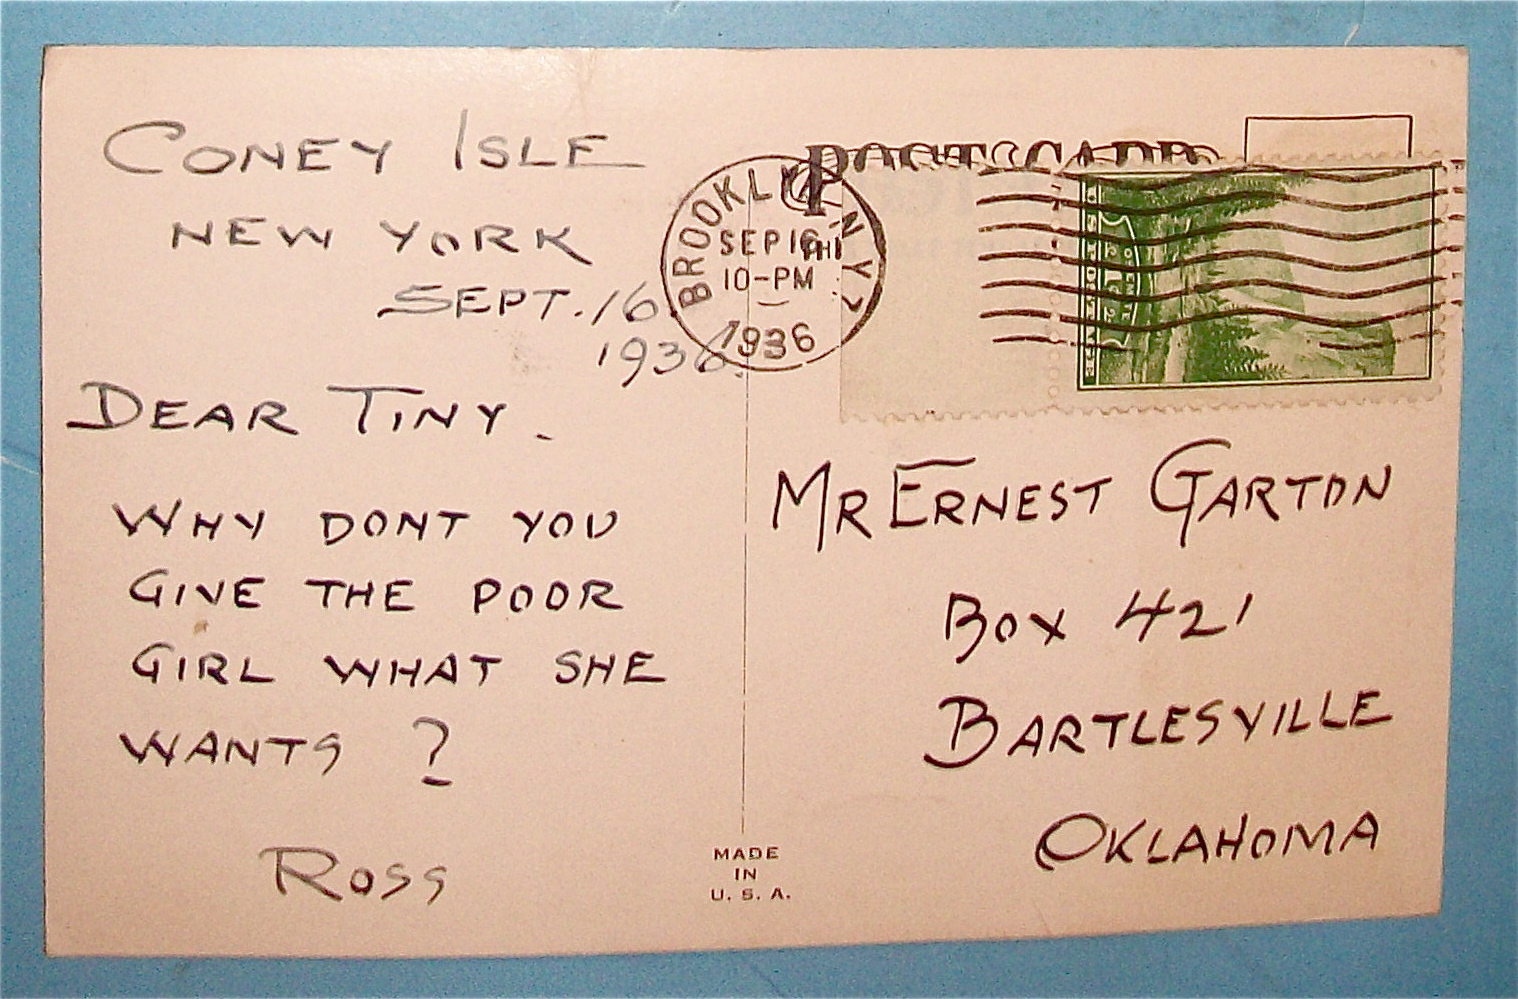 CONEY ISLE
NEW YORK
SEPT. 16
1936.
DEAR TINY.
WHY DONT YOU
GIVE THE POOR
GIRL WHAT SHE
WANTS ?
ROSS
POST CARD
BROOKLYN NY
SEP 16
10-PM
1936
MR ERNEST GARTON
BOX 421
BARTLESVILLE
OKLAHOMA
MADE
IN
U. S. A.